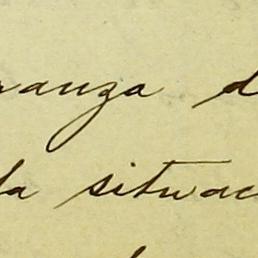 ranza d
la situac